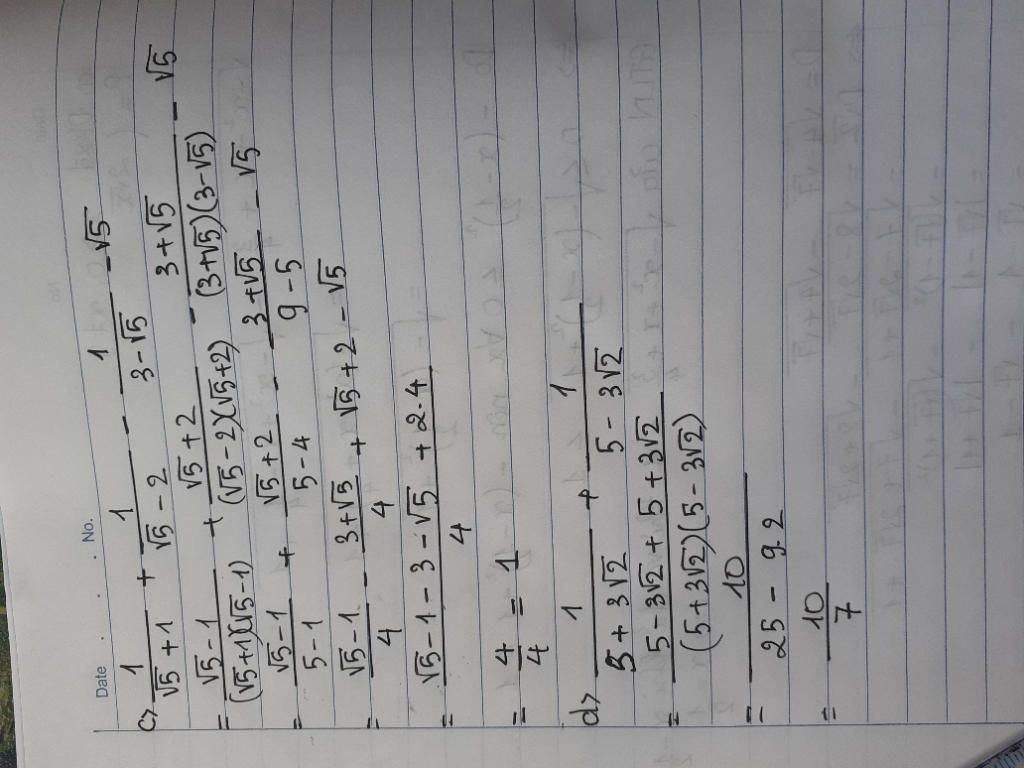 Date . . . No.
c> 1/(√5 + 1) + 1/(√5 - 2) - 1/(3 - √5) - √5
= (√5 - 1)/((√5+1)(√5-1)) + (√5 + 2)/((√5 - 2)(√5+2)) - (3 + √5)/((3+√5)(3-√5)) - √5
= (√5 - 1)/(5 - 1) + (√5 + 2)/(5 - 4) - (3 + √5)/(9 - 5) - √5
= (√5 - 1)/4 - (3 + √5)/4 + √5 + 2 - √5
= (√5 - 1 - 3 - √5 + 2.4)/4
= 4/4 = 1
d> 1/(5 + 3√2) + 1/(5 - 3√2)
= (5 - 3√2 + 5 + 3√2)/((5+3√2)(5-3√2))
= 10/(25 - 9.2)
= 10/7